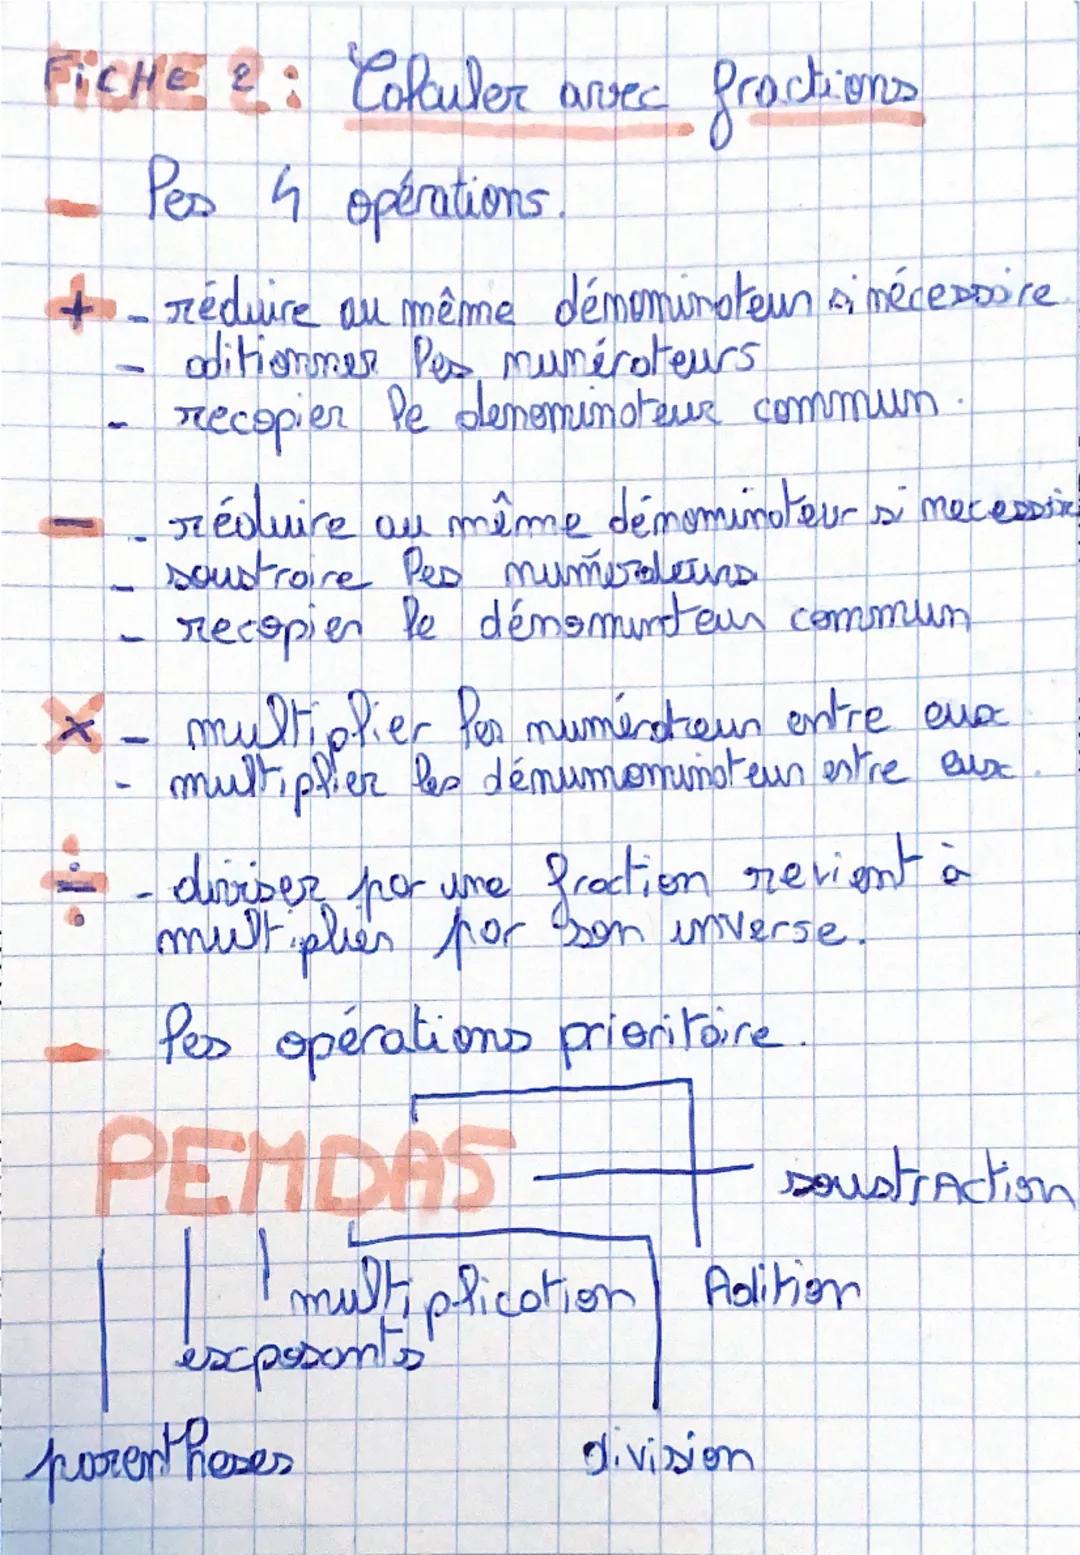 FICHE 2 : Calculer avec fractions
- les 4 opérations.
+ - réduire au même dénominateur si nécessaire
- aditionner les numérateurs
- recopier le denominateur commun.
- - réduire au même dénominateur si necessaire
- soustraire les numérateurs
- recopier le dénominteur commun
x - multiplier les numérateur entre eux
- multiplier les dénumominateur entre eux.
÷ - diviser par une fraction revient à
multiplier par son inverse.
- les opérations prioritaire.
PEMDAS
soustrAction
multiplication
Adition
exposants
parentheses
division